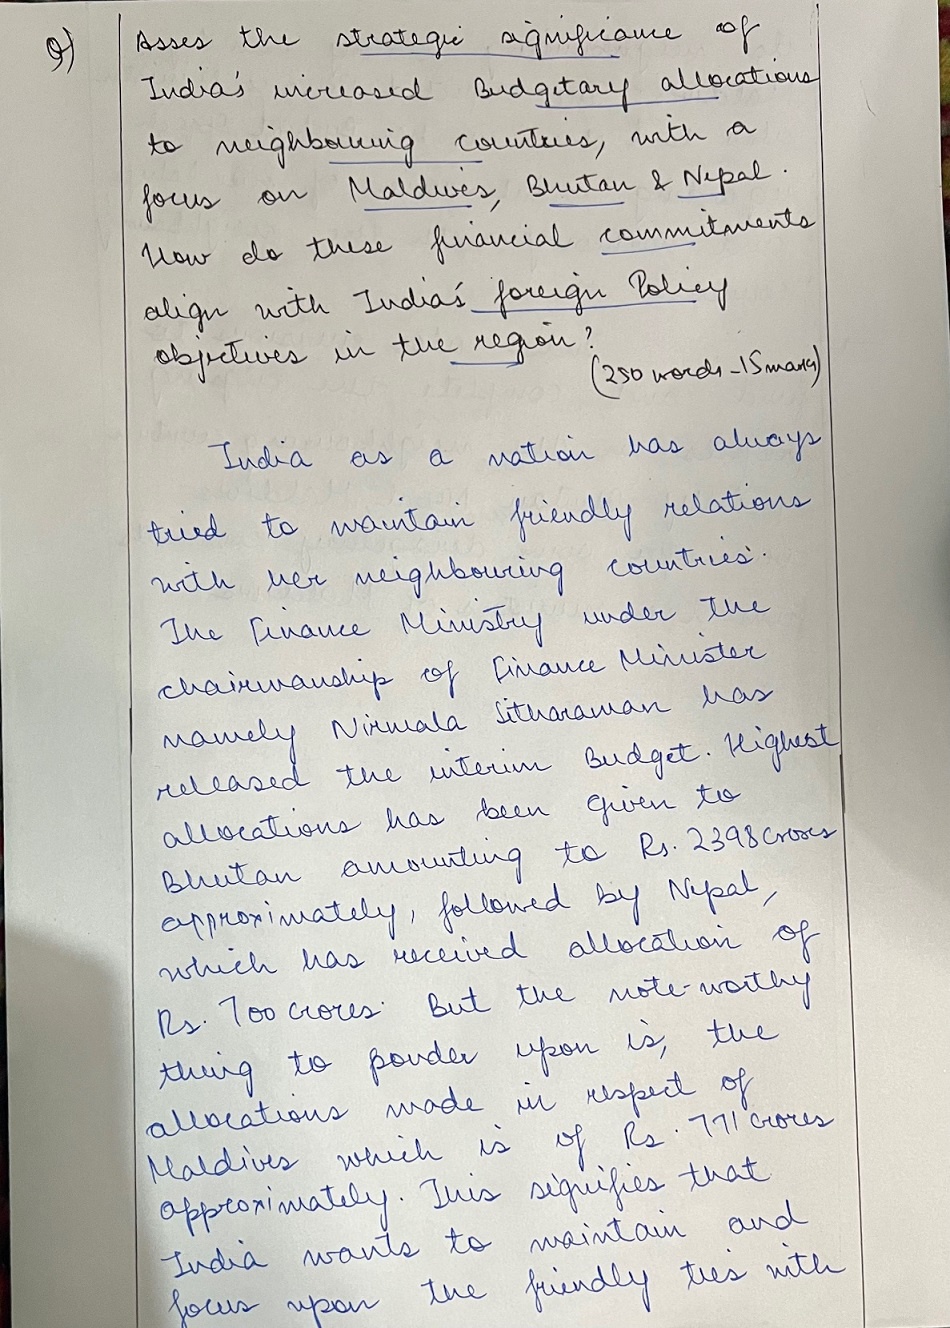 Q)
Asses the strategic significance of
India's increased Budgetary allocations
to neighbouring countries, with a
focus on Maldives, Bhutan & Nepal.
How do these financial commitments
align with India's foreign Policy
objectives in the region?
(250 words - 15 marks)
India as a nation has always
tried to maintain friendly relations
with her neighbouring countries.
The Finance Ministry under the
chairmanship of Finance Minister
namely Nirmala Sitharaman has
released the interim Budget. Highest
allocations has been given to
Bhutan amounting to Rs. 2398 crores
approximately, followed by Nepal,
which has received allocation of
Rs. 700 crores. But the note-worthy
thing to ponder upon is, the
allocations made in respect of
Maldives which is of Rs. 771 crores
approximately. This signifies that
India wants to maintain and
focus upon the friendly ties with